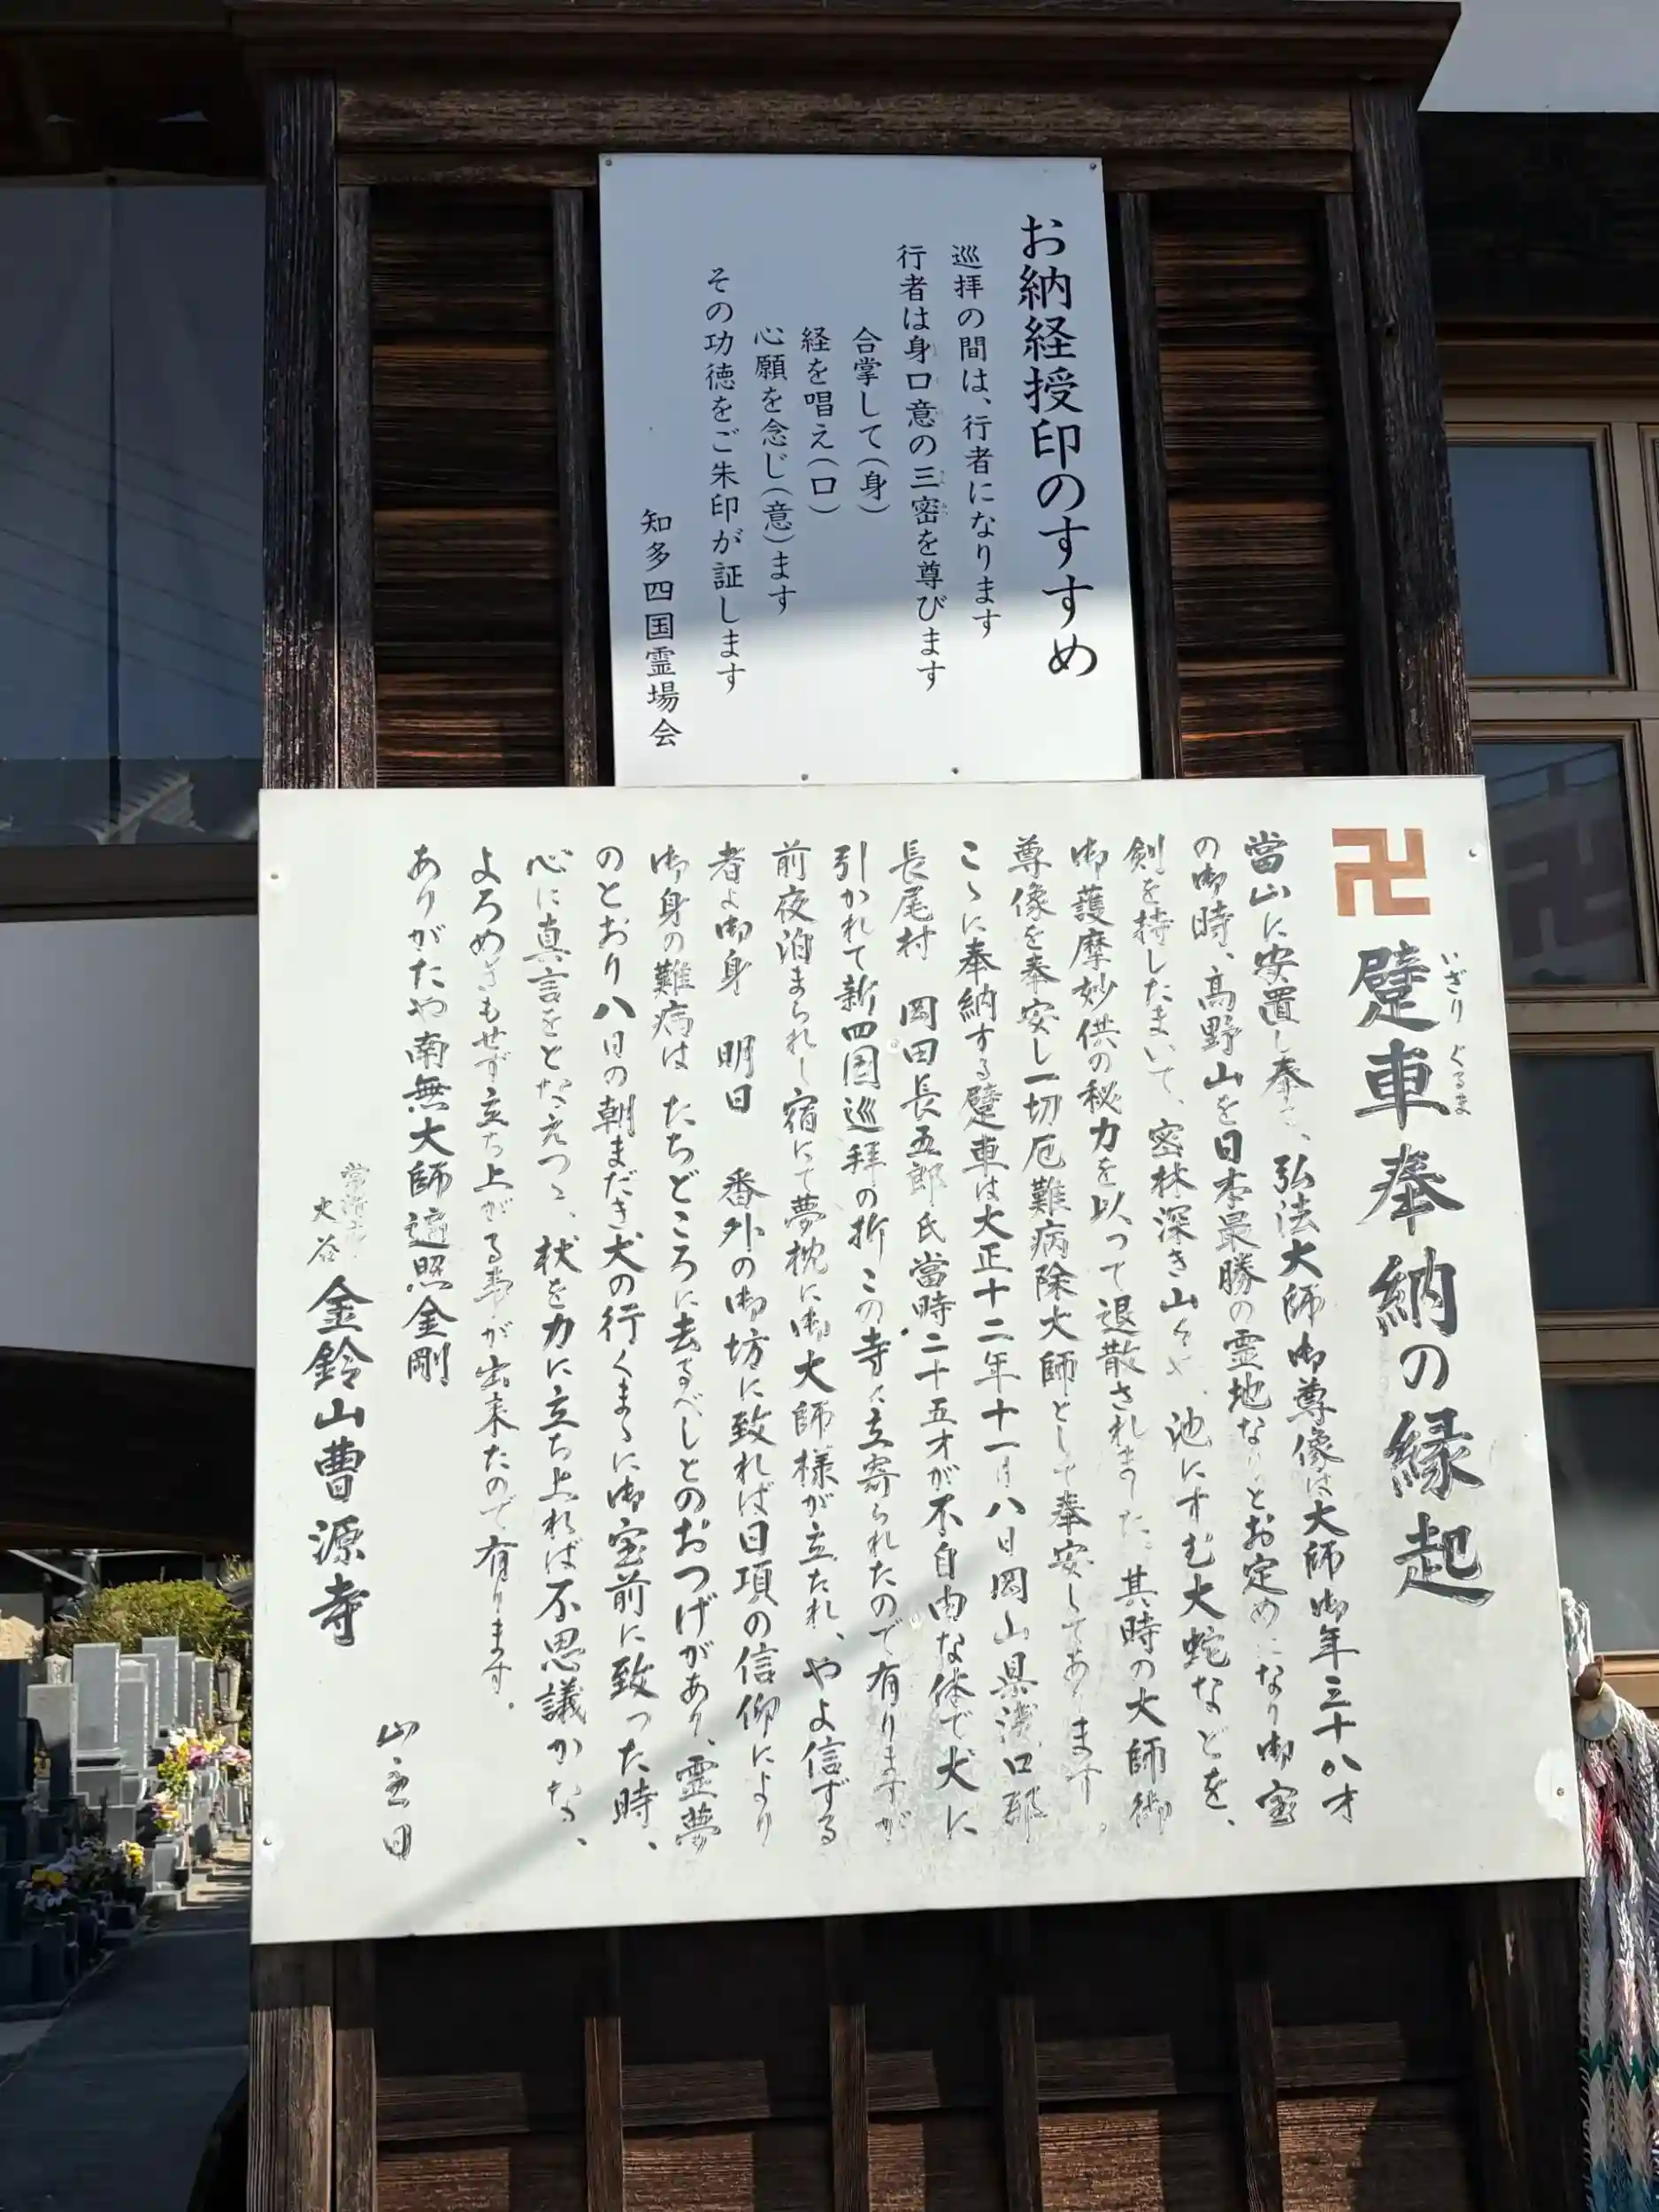 お納経授印のすすめ
巡拝の間は、行者になります
行者は身口意の三密を尊びます
合掌して(身)
経を唱え(口)
心願を念じ(意)ます
その功徳をご朱印が証します
知多四国霊場会
卍 躄車奉納の縁起
いざり ぐるま
當山に安置し奉る、弘法大師御尊像は大師御年三十八才
の御時、高野山を日本最勝の霊地なりとお定めになり御宝
剣を持したまいて、密林深き山々や、池にすむ大蛇などを、
御護摩妙供の秘力を以って退散されました。其時の大師御
尊像を奉安し一切厄難病除大師として奉安してあります。
こゝに奉納する躄車は大正十二年十一月八日岡山県浅口郡
長尾村 岡田長五郎氏當時二十五才が不自由な体で犬に
引かれて新四国巡拝の折この寺に立寄られたので有りますが
前夜泊まられし宿にて夢枕に御大師様が立たれ、やよ信ずる
者よ御身 明日 番外の御坊に致れば日項の信仰により
御身の難病は たちどころに去るべしとのおつげがあり、霊夢
のとおり八日の朝まだき犬の行くまゝに御宝前に致った時、
心に真言をとなえつゝ、杖を力に立ち上れば不思議かな、
よろめきもせず立ち上がる事が出来たので有ります。
ありがたや南無大師遍照金剛
山主曰
大谷 金鈴山曹源寺